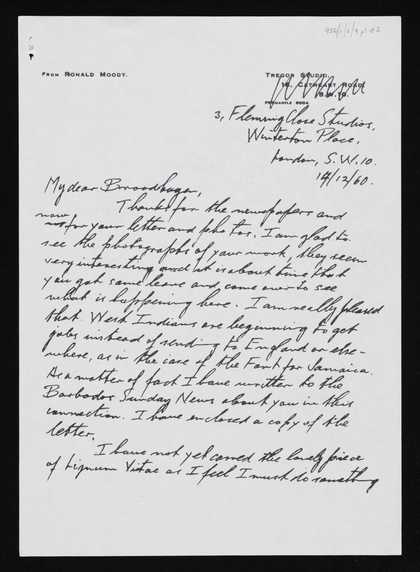 From Ronald Moody.
Tregor Studio,
18, Cathcart Road,
S.W.10.
3, Fleming Close Studios,
Winterton Place,
London, S.W.10.
14/12/60.
My dear Broodhagen,
Thanks for the newspapers and
now for your letter and photos. I am glad to
see the photographs of your work, they seem
very interesting and it is about time that
you got some leave and came over to see
what is happening here. I am really pleased
that West Indians are beginning to get
jobs instead of sending to England or else-
where, as in the case of the Font for Jamaica.
As a matter of fact I have written to the
Barbados Sunday News about you in this
connection. I have enclosed a copy of the
letter.
I have not yet carved the lovely piece
of Lignum Vitae as I feel I must do something